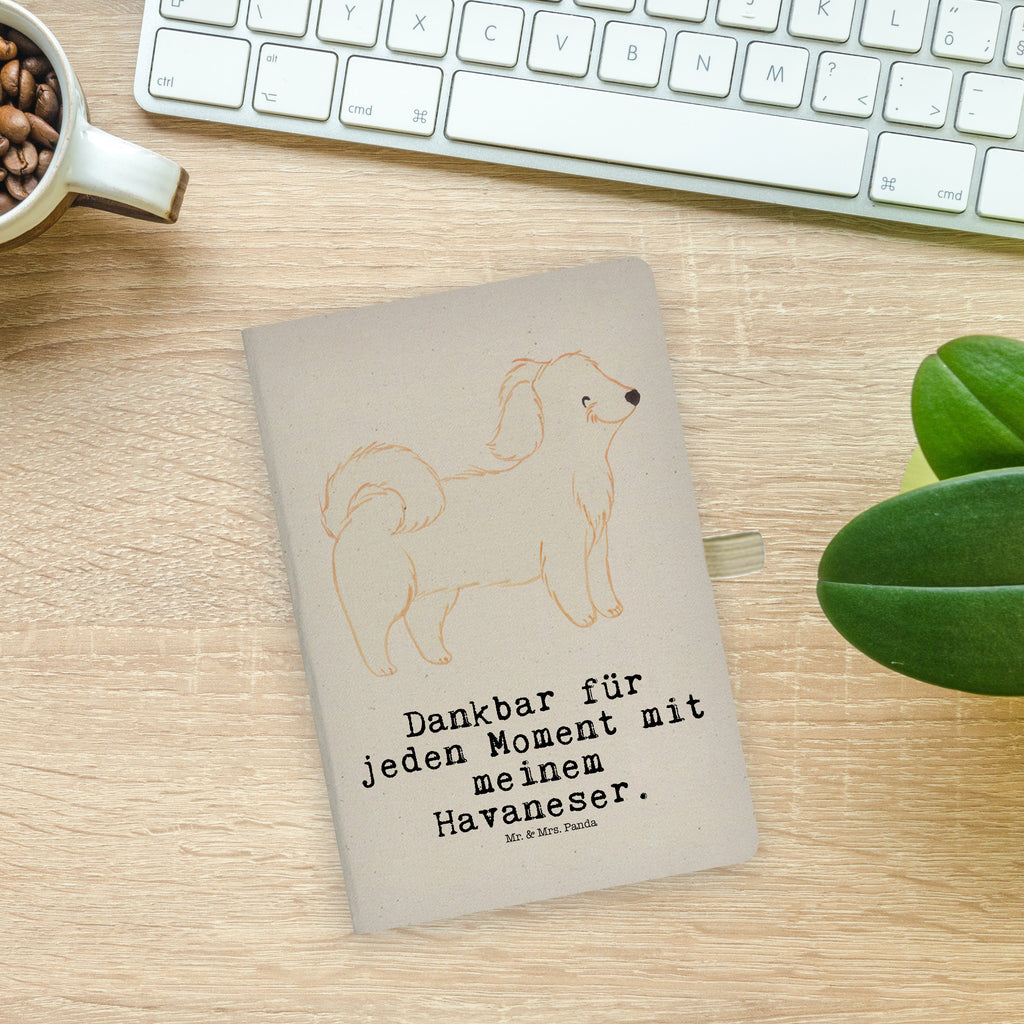 Y X C V B N M K L
ctrl alt cmd ⌘ ⌘ cmd
Dankbar für
jeden Moment mit
meinem
Havaneser.
Mr. & Mrs. Panda